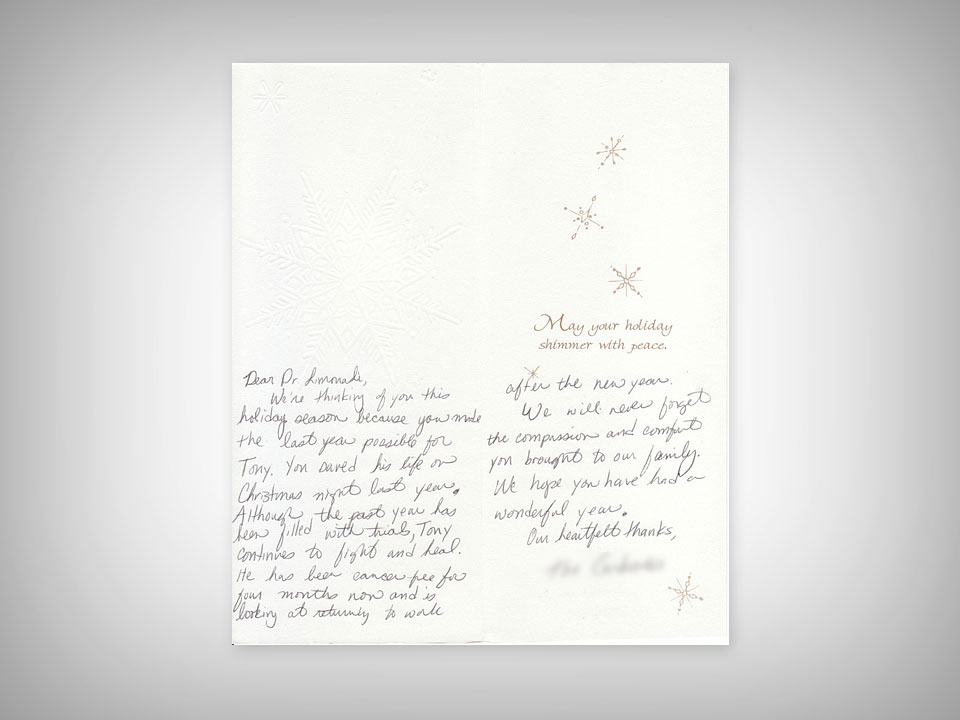 Dear Dr. Limonadi,
We're thinking of you this
holiday season because you made
the last year possible for
Tony. You saved his life on
Christmas night last year.
Although the past year has
been filled with trials, Tony
continues to fight and heal.
He has been cancer-free for
four months now and is
looking at returning to work
May your holiday
shimmer with peace.
after the new year.
We will never forget
the compassion and comfort
you brought to our family.
We hope you have had a
wonderful year.
Our heartfelt thanks,